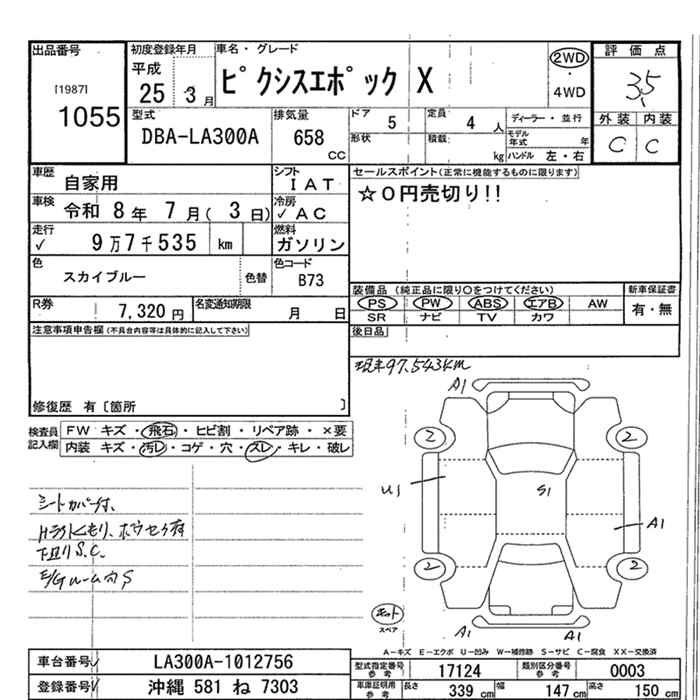 出品番号
[1987]
1055
初度登録年月
平成
25 3月
車名・グレード
ピクシスエポック X
2WD
・
4WD
評価点
3.5
外装 内装
C C
型式
DBA-LA300A
排気量
658
CC
ドア
5
形状
定員
4 人
積載
kg
ディーラー・並行
モデル年式 年
ハンドル 左・右
車歴
自家用
シフト
IAT
車検
令和 8年 7月( 3日)
冷房
✓AC
走行
✓ 9万7千535 km
燃料
ガソリン
色
スカイブルー
色替
色コード
B73
R券
7,320円
名変通知期限
月 日
セールスポイント(正常に機能するものに限ります)
☆0円売切り!!
装備品 (純正品に限り〇をつけてください)
PS PW ABS エアB AW
SR ナビ TV カワ
新車保証書
有・無
後日品
注意事項申告欄(不具合内容等は具体的に記入して下さい)
修復歴 有〔箇所 〕
検査員記入欄
FW キズ・飛石・ヒビ割・リペア跡・×要
内装 キズ・汚レ・コゲ・穴・スレ・キレ・破レ
現車97,543km
シートカバー付、
下廻りS.C.
E/Gルーム内S
A1
2 2
U1
S1
A1
2 2
スペア
A1 A1
A-キズ E-エクボ U-凹み W-補修跡 S-サビ C-腐食 XX-交換済
車台番号
LA300A-1012756
登録番号
沖縄 581 ね 7303
型式指定番号
参考
17124
類別区分番号
参考
0003
車庫証明用
参考
長さ 339 cm
幅 147 cm
高さ 150 cm